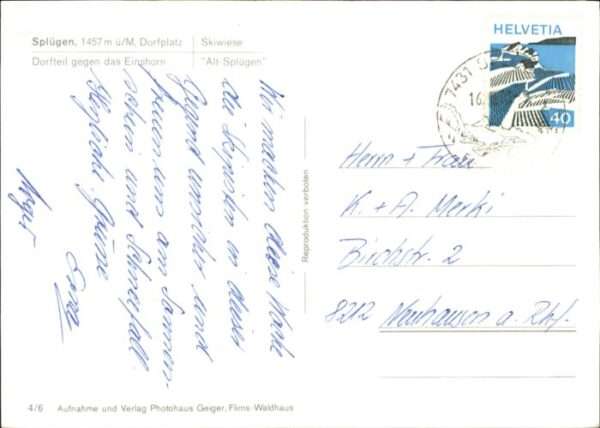 Splügen, 1457 m ü/M, Dorfplatz Skiwiese
Dorfteil gegen das Einshorn "Alt-Splügen"
HELVETIA
40
7431
16.
Wir machen diese Woche
die Skipisten in dieser
Gegend unsicher und
freuen uns am Sonnen-
schein und Schneefall.
Herzliche Grüsse
Herrn + Frau
K. + A. Merki
Birchstr. 2
8212 Neuhausen a. Rhf.
Reproduktion verboten
4/6 Aufnahme und Verlag Photohaus Geiger, Flims-Waldhaus